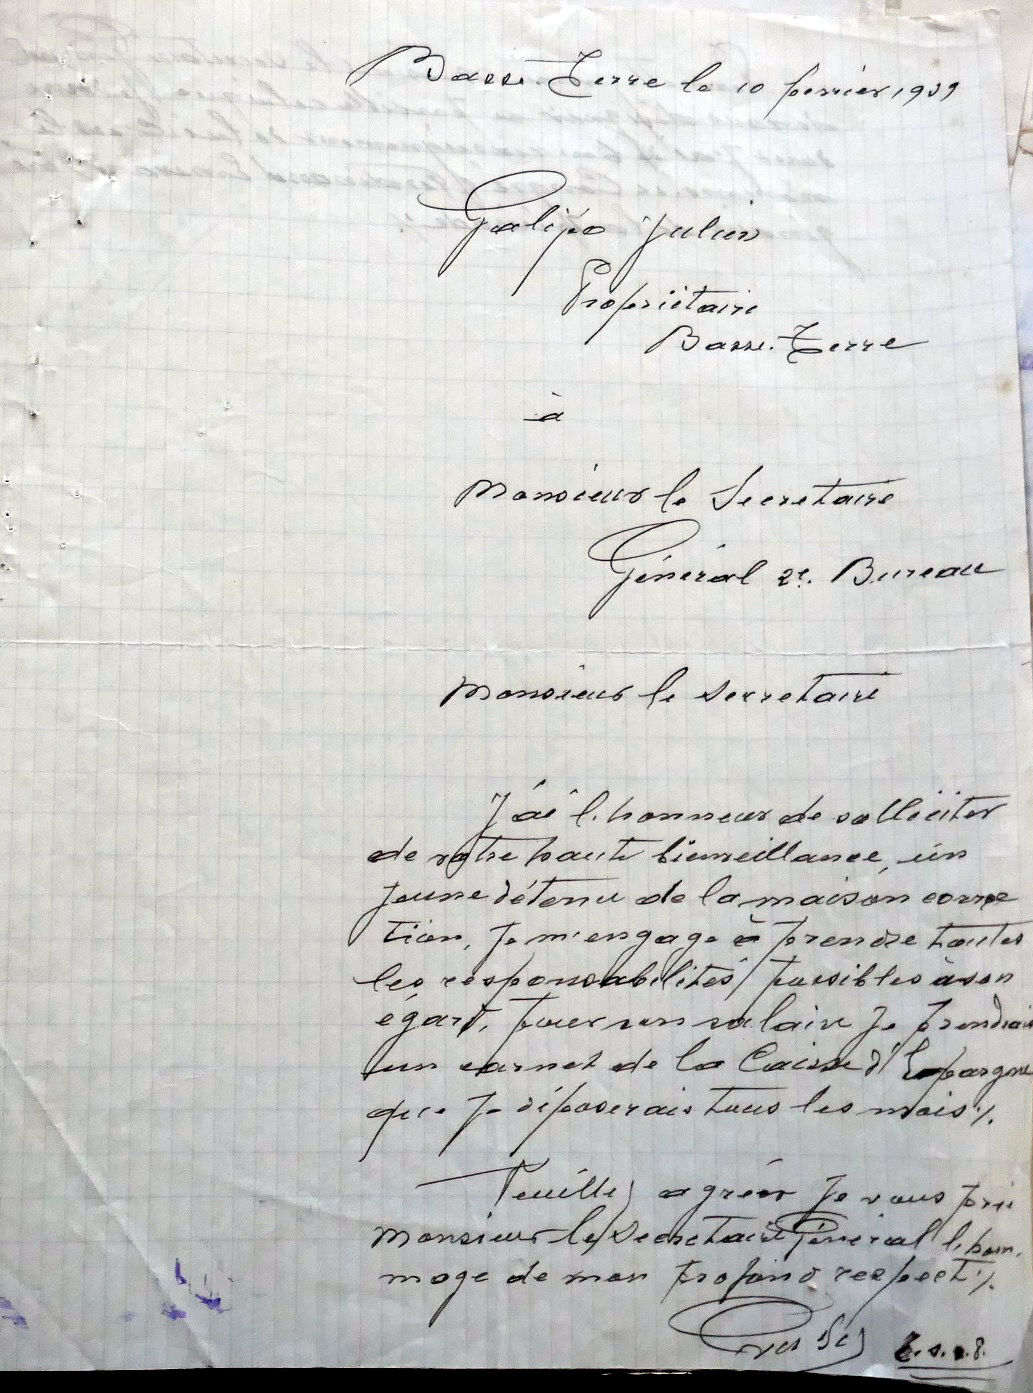 Basse-Terre le 10 février 1939
Galipo Julien
Propriétaire
Basse-Terre
à
Monsieur le Secretaire
Général 2e. Bureau
Monsieur le secretaire
J'ai l'honneur de solliciter
de votre haute bienveillance, un
jeune détenu de la maison correc
tion, je m'engage à prendre toutes
les responsabilités possibles à son
égart, pour son salaire je prendrais
un carnet de la Caisse d'Epargne
que je déposerais tous les mois ./.
Veuillez agréer je vous prie
monsieur le Secretaire Général l'hom-
mage de mon profond respect ./.